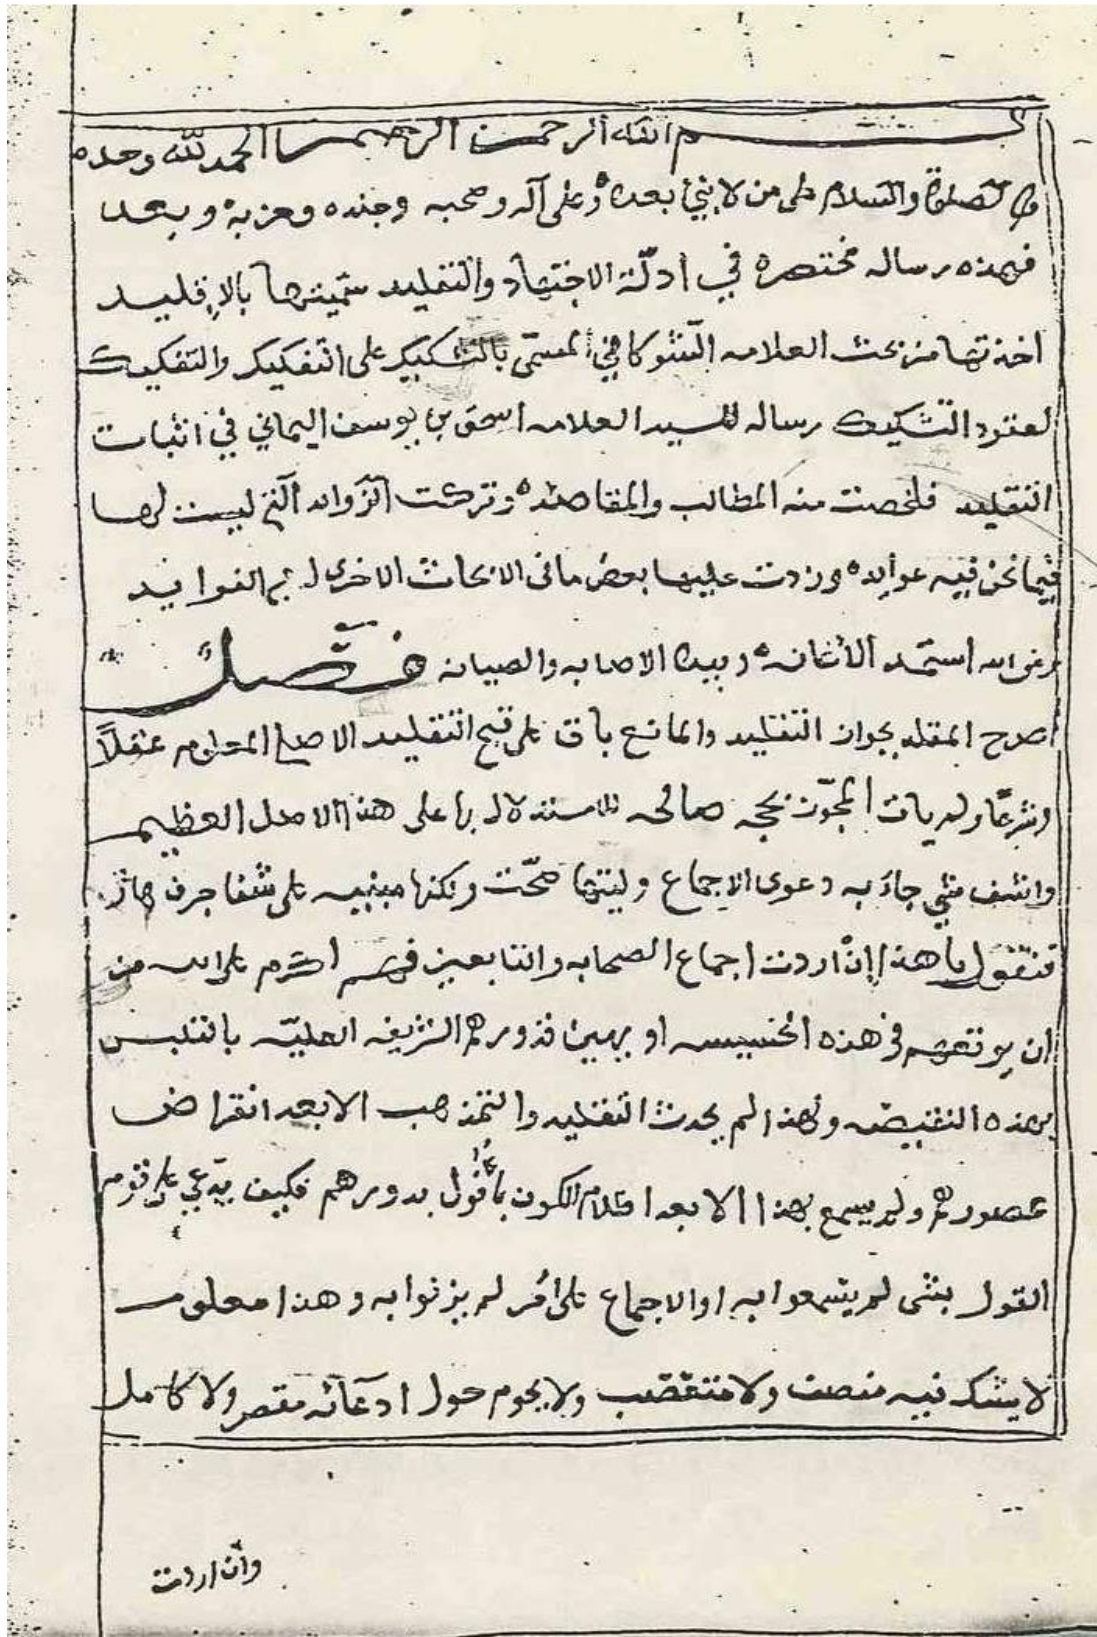 بسم الله الرحمن الرحيم الحمد لله وحده
والصلوة والسلام على من لا نبي بعده وعلى آله وصحبه وجنده وحزبه وبعد
فهذه رساله مختصره في ادلّة الاجتهاد والتقليد سميتها بالإقليد
اخذتها من بحث العلامه الشوكاني المسمّى بالتشكيك على التفكيك والتفكيك
لعقود التشكيك رساله للسيد العلامه اسحق بن يوسف اليماني في اثبات
التقليد فلخصت منه المطالب والمقاصده وتركت الزوائد التي ليست لها
فيما نحن فيه عوايده وزدت عليها بعض ما في الابحاث الاخرى من الفوايد
ومن الله استمد الأعانه وبيده الاصابه والصيانه فصل
صرح المقلد بجواز التقليد والمانع باق على قبح التقليد الاصلي المعلوم عقلاً
وشرعًا ولم يات المجوّز بحجه صالحه للاستدلال بها على هذا الاصل العظيم
واشف شي جاء به دعوى الاجماع وليتها صحّت ولكنها مبنيه على شفا جرف هارٍ
فنقول يا هذا إنْ اردت اجماع الصحابه والتابعين فهم اكرم على الله من
ان يوقعهم في هذه الخسيسه او يهين قدورهم الشريفه العليّه بالتلبس
بهذه النقيصه ولهذا لم يحدث التقليد والتمذهب الا بعد انقراض
عصورهم ولم يسمع بهذا الا بعد اظلام الكون بأفول بدورهم فكيف يدّعي على قوم
القول بشي لم يسمعوا به او الاجماع على امْر لم يزنوا به وهذا معلوم
لا يشك فيه منصف ولا متعصّب ولا يحوم حول ادعائه مقصر ولا كامل
وان اردت